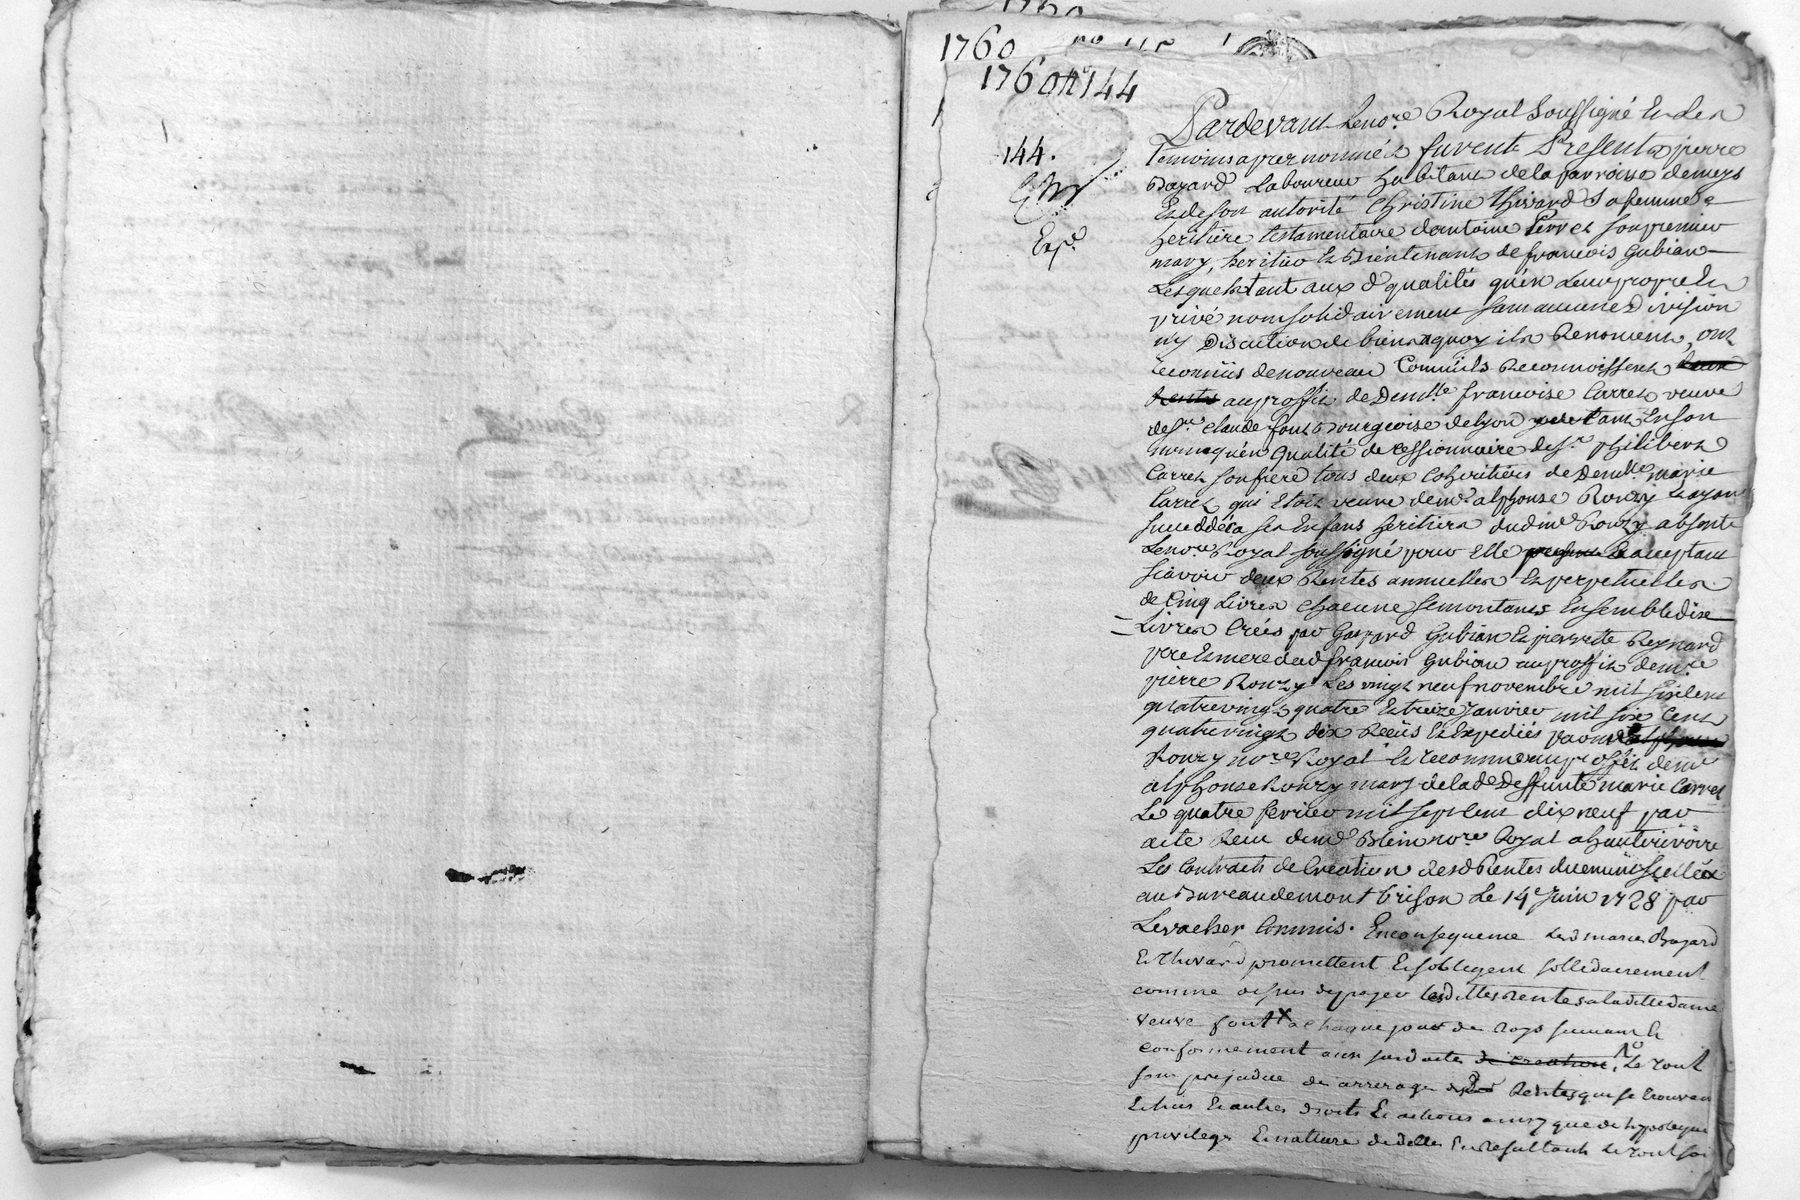 1760
1760 n° 144
144.
Exp.é
Pardevant Le no.re Royal Soussigné Et Les
temoins apres nommés furent Presents pierre
Bayard Laboureur habitant de la parroisse de meys
Et de son autorité Christine Thivard Sa femme
heritiere testamentaire d'antoine Perret son premier
mary, heritier Et Bientenant de francois Gubian
Lesquels tant aux d. qualités qu'en Leur propre Et
privé nom solidairement sans aucune Division
ny Discution de biens a quoy ils Renoncent, ont
reconnüs de nouveau Comm'ils Reconnoissent
au proffit de Demlle francoise Carret veuve
de Sr. Claude font Bourgeoise de Lyon tant En son
nom qu'en qualité de cessionnaire de Sr. philibert
Carret son frere tous deux Coheritiers de Demlle marie
Carret qui Etoit veuve de md alphonse Rouzy Et ayant
succeddé a ses Enfans heritiers dud md Rouzy absente
Le no.re Royal soussigné pour Elle acceptant
sçavoir deux Rentes annuelles Et perpetuelles
de Cinq Livres chacune se montants Ensemble dix
Livres Créés par Gaspard Gubian Et pierrette Reynard
pere Et mere dud francois Gubian au proffit de me
pierre Rouzy Les vingt neuf novembre mil six cent
quatrevingt quatre Et treize Janvier mil six Cent
quatrevingt dix Reçüs Et Expediés par md
Rouzy no.re Royal Et reconnue au proffit de me
alphonse Rouzy mary de lad. Deffunte marie Carret
Le quatre fevrier mil sept Cent dix neuf par
acte Recu de md Blein no.re Royal a hauterivoire
Les Contracts de Creation desd Rentes duement Scellés
au Bureau de montbrison Le 14e Juin 1728 par
Levacher Commis. En consequence Lesd mariés Bayard
Et Thivard promettent Et s'obligent sollidairement
comme dessus de payer Lesdittes Rentes a la ditte dame
veuve font a chaque jour de Roys suivant Et
conformement aux susd actes de creation, Le tout
sans prejudice des arrerages desd Rentes qui se trouvent
Echus Et autres droits Et actions ainsy que de hypoteque
privilege Et nature de dette En resultants Le tout soi